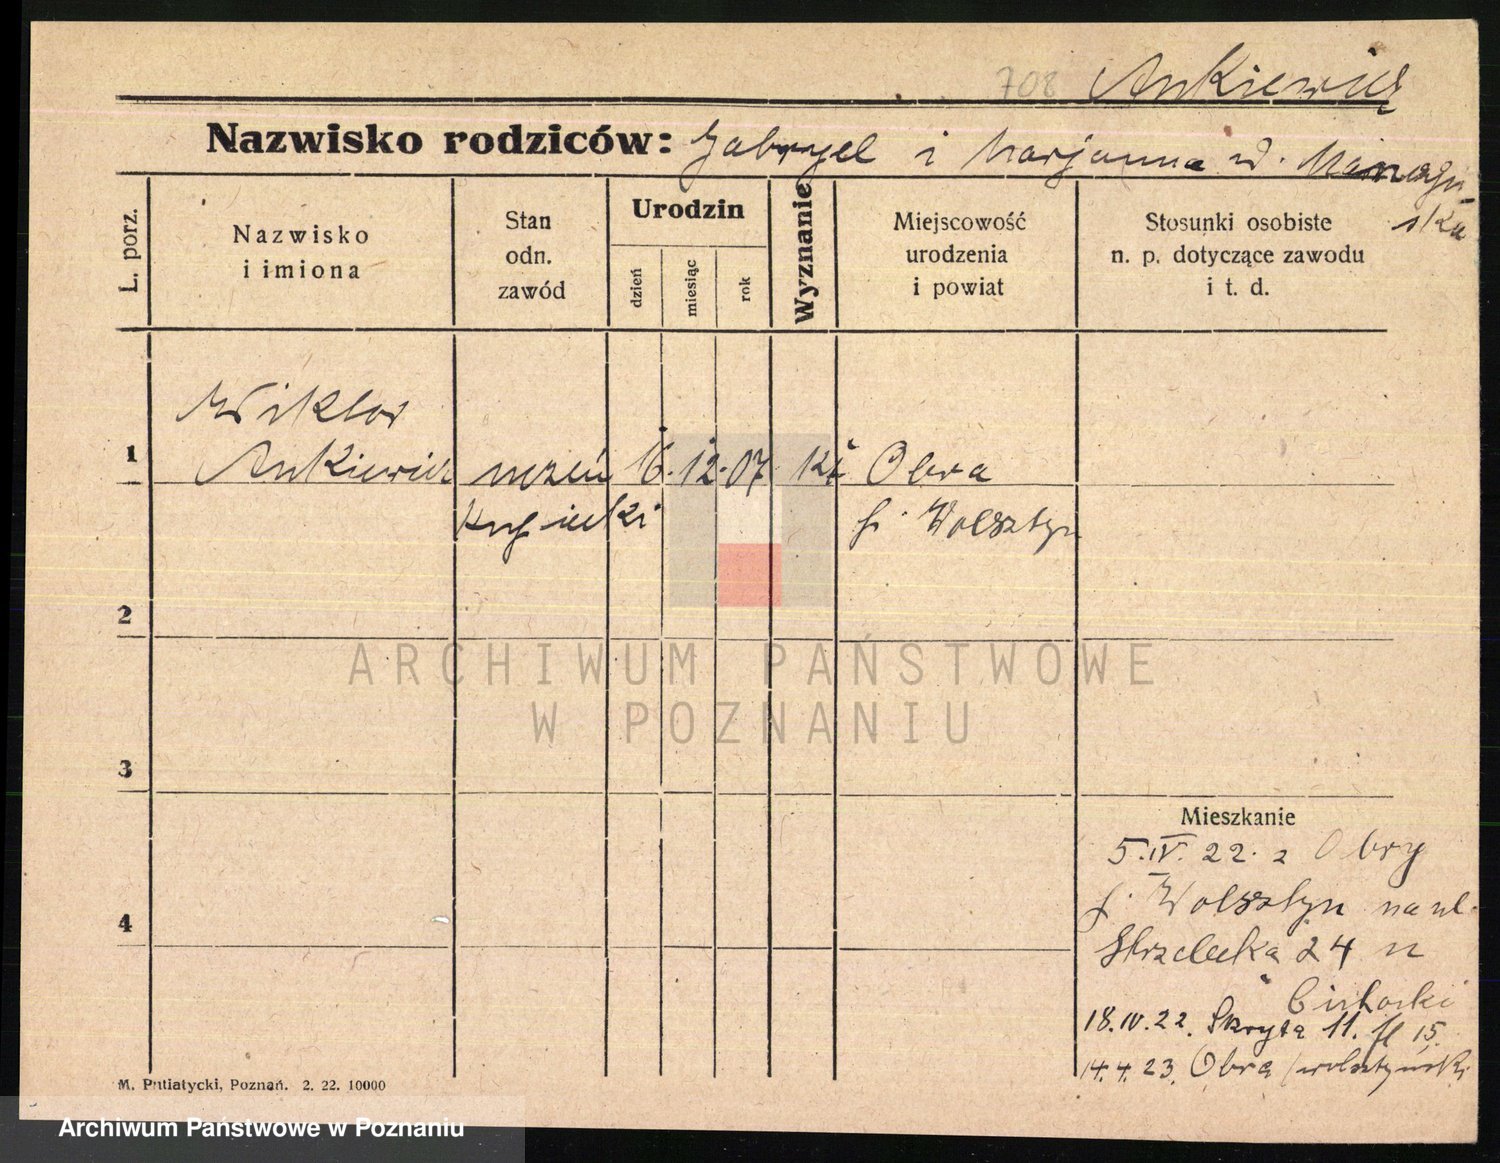 708 Ankiewicz
Nazwisko rodziców: Gabryel i Marjanna
L. porz.
Nazwisko
i imiona
Stan
odn.
zawód
Urodzin
dzień
miesiąc
rok
Wyznanie
Miejscowość
urodzenia
i powiat
Stosunki osobiste
n. p. dotyczące zawodu
i t. d.
Wiktor
1 Ankiewicz uczeń 16. 12. 07. kt Obra
kupiecki p. Wolsztyn
2
ARCHIWUM PAŃSTWOWE
W POZNANIU
3
Mieszkanie
5.IV. 22. z Obry
p. Wolsztyn na ul.
4
Strzelecka 24 u
Cichocki
18.IV.22. Skryta 11. 15.
14.4.23. Obra
M. Putiatycki, Poznań. 2. 22. 10000
Archiwum Państwowe w Poznaniu